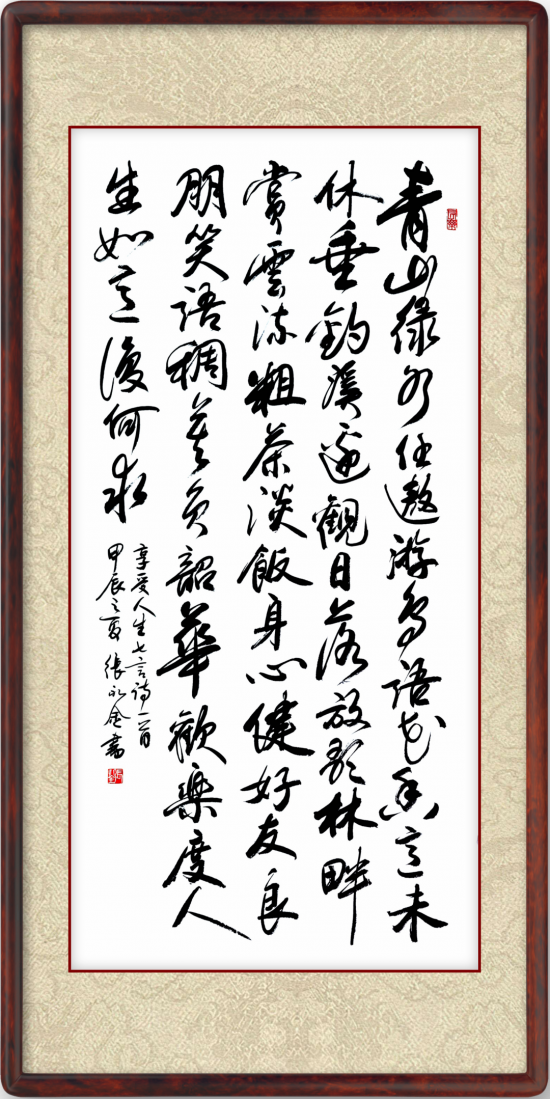 青山绿水任遨游鸟语花香意未
休垂钓溪边觀日落放歌林畔
赏雲流粗茶淡飯身心健好友良
朋笑语稠莫负韶華歡樂度人
生如意復何求
享受人生七言诗一首
甲辰之夏 張永金書